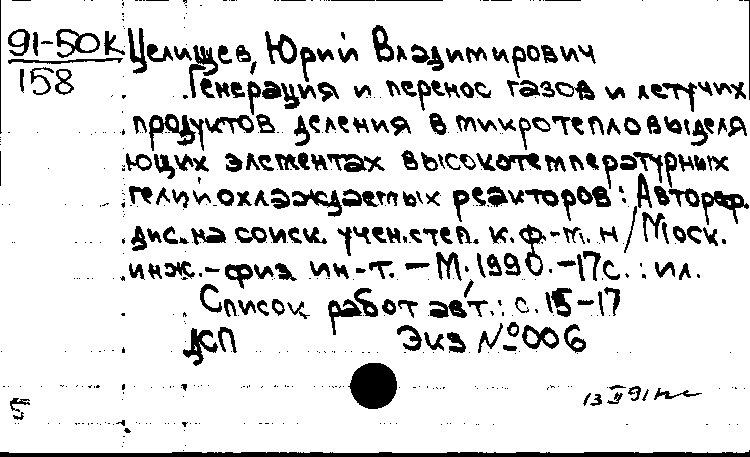 91-50К
158
Целищев, Юрий Владимирович
Генерация и перенос газов и летучих
продуктов деления в микротепловыделя
ющих элементах высокотемпературных
гелийохлаждаемых реакторов: Автореф.
дис. на соиск. учен. степ. к. ф.-м. н / Моск.
инж.-физ ин-т. – М., 1990. – 17с. : ил.
Список работ авт.: с. 15-17
ДСП Экз № 006
13 II 91
5